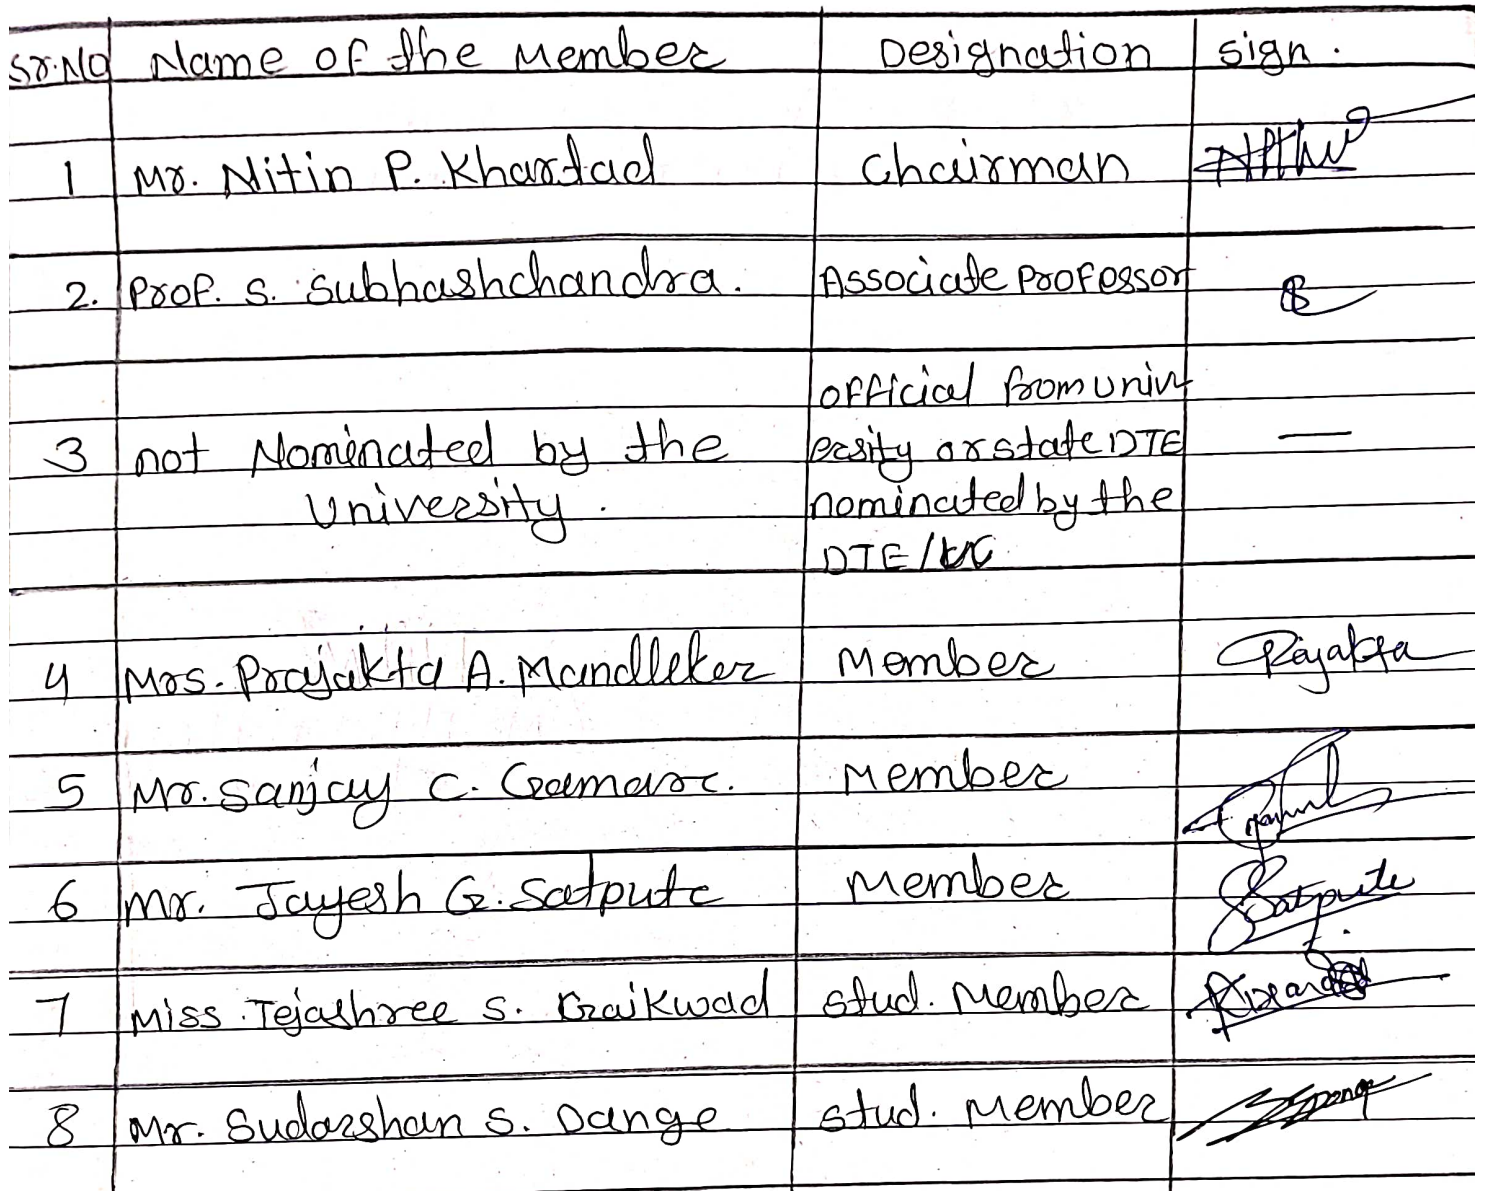 Sr.No Name of the Member Designation sign.
1 Mr. Nitin P. Khartad Chairman
2. Prof. S. Subhashchandra. Associate Professor
official from univ
3 not Nominated by the ersity or state DTE
University. nominated by the
DTE/
4 Mrs. Prajakta A. Mandleker Member Prajakta
5 Mr. Sanjay C. Gamare. Member
6 Mr. Jayesh G. Satpute Member Satpute
7 Miss. Tejashree S. Gaikwad stud. Member
8 Mr. Sudarshan S. Dange stud. Member